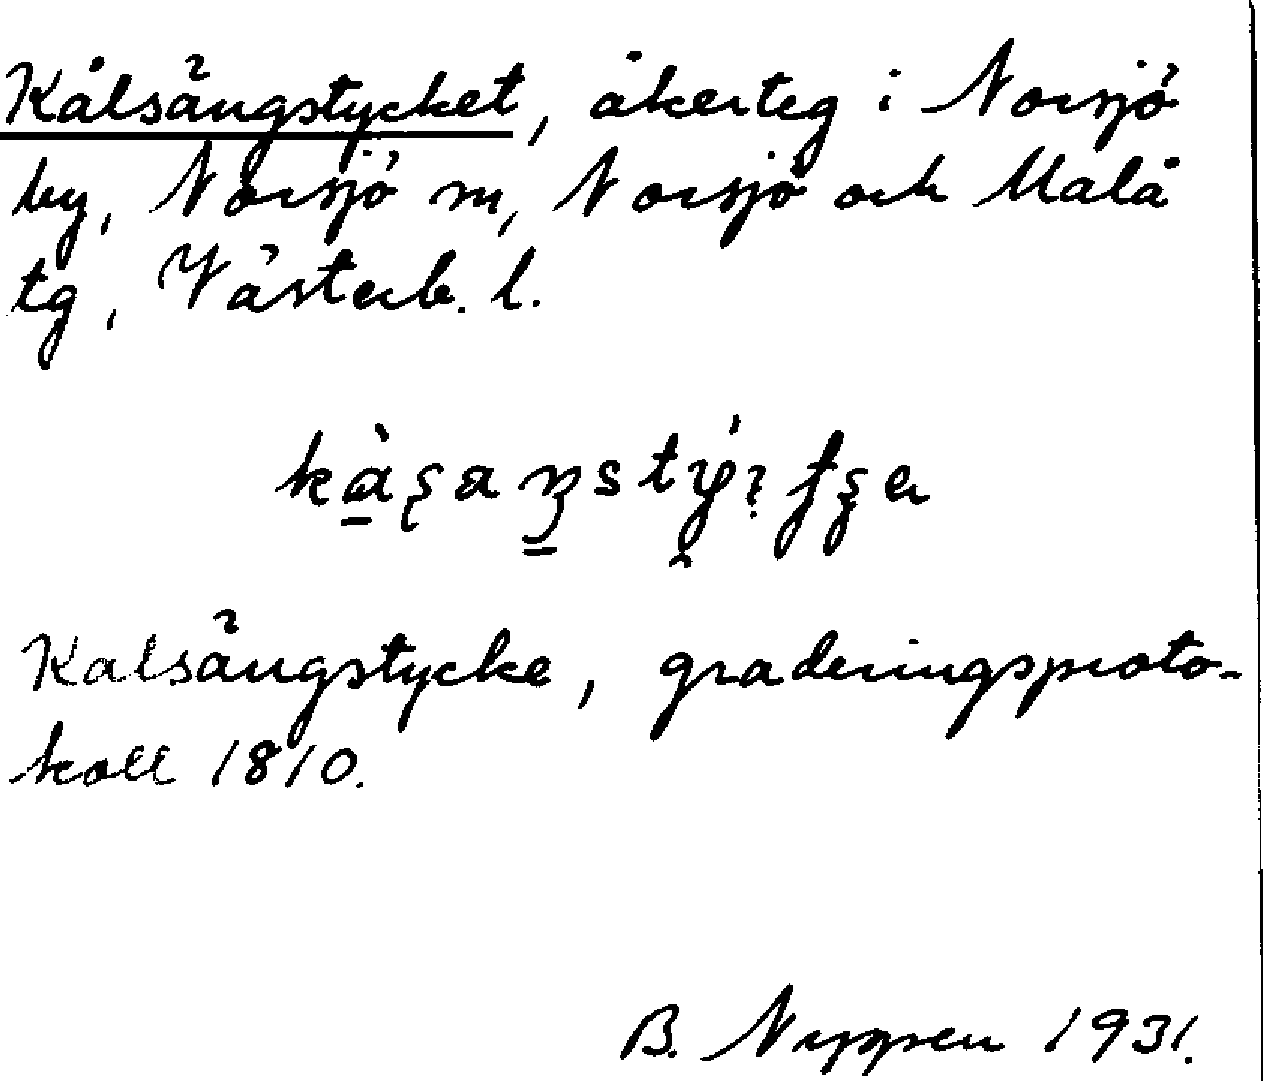 Kålsängstycket, åkerteg i Norsjö
by, Norsjö sn, Norsjö och Malå
tg, Västerb. l.
Kalsängstycke, graderingsproto-
koll 1810.
B. 1931.